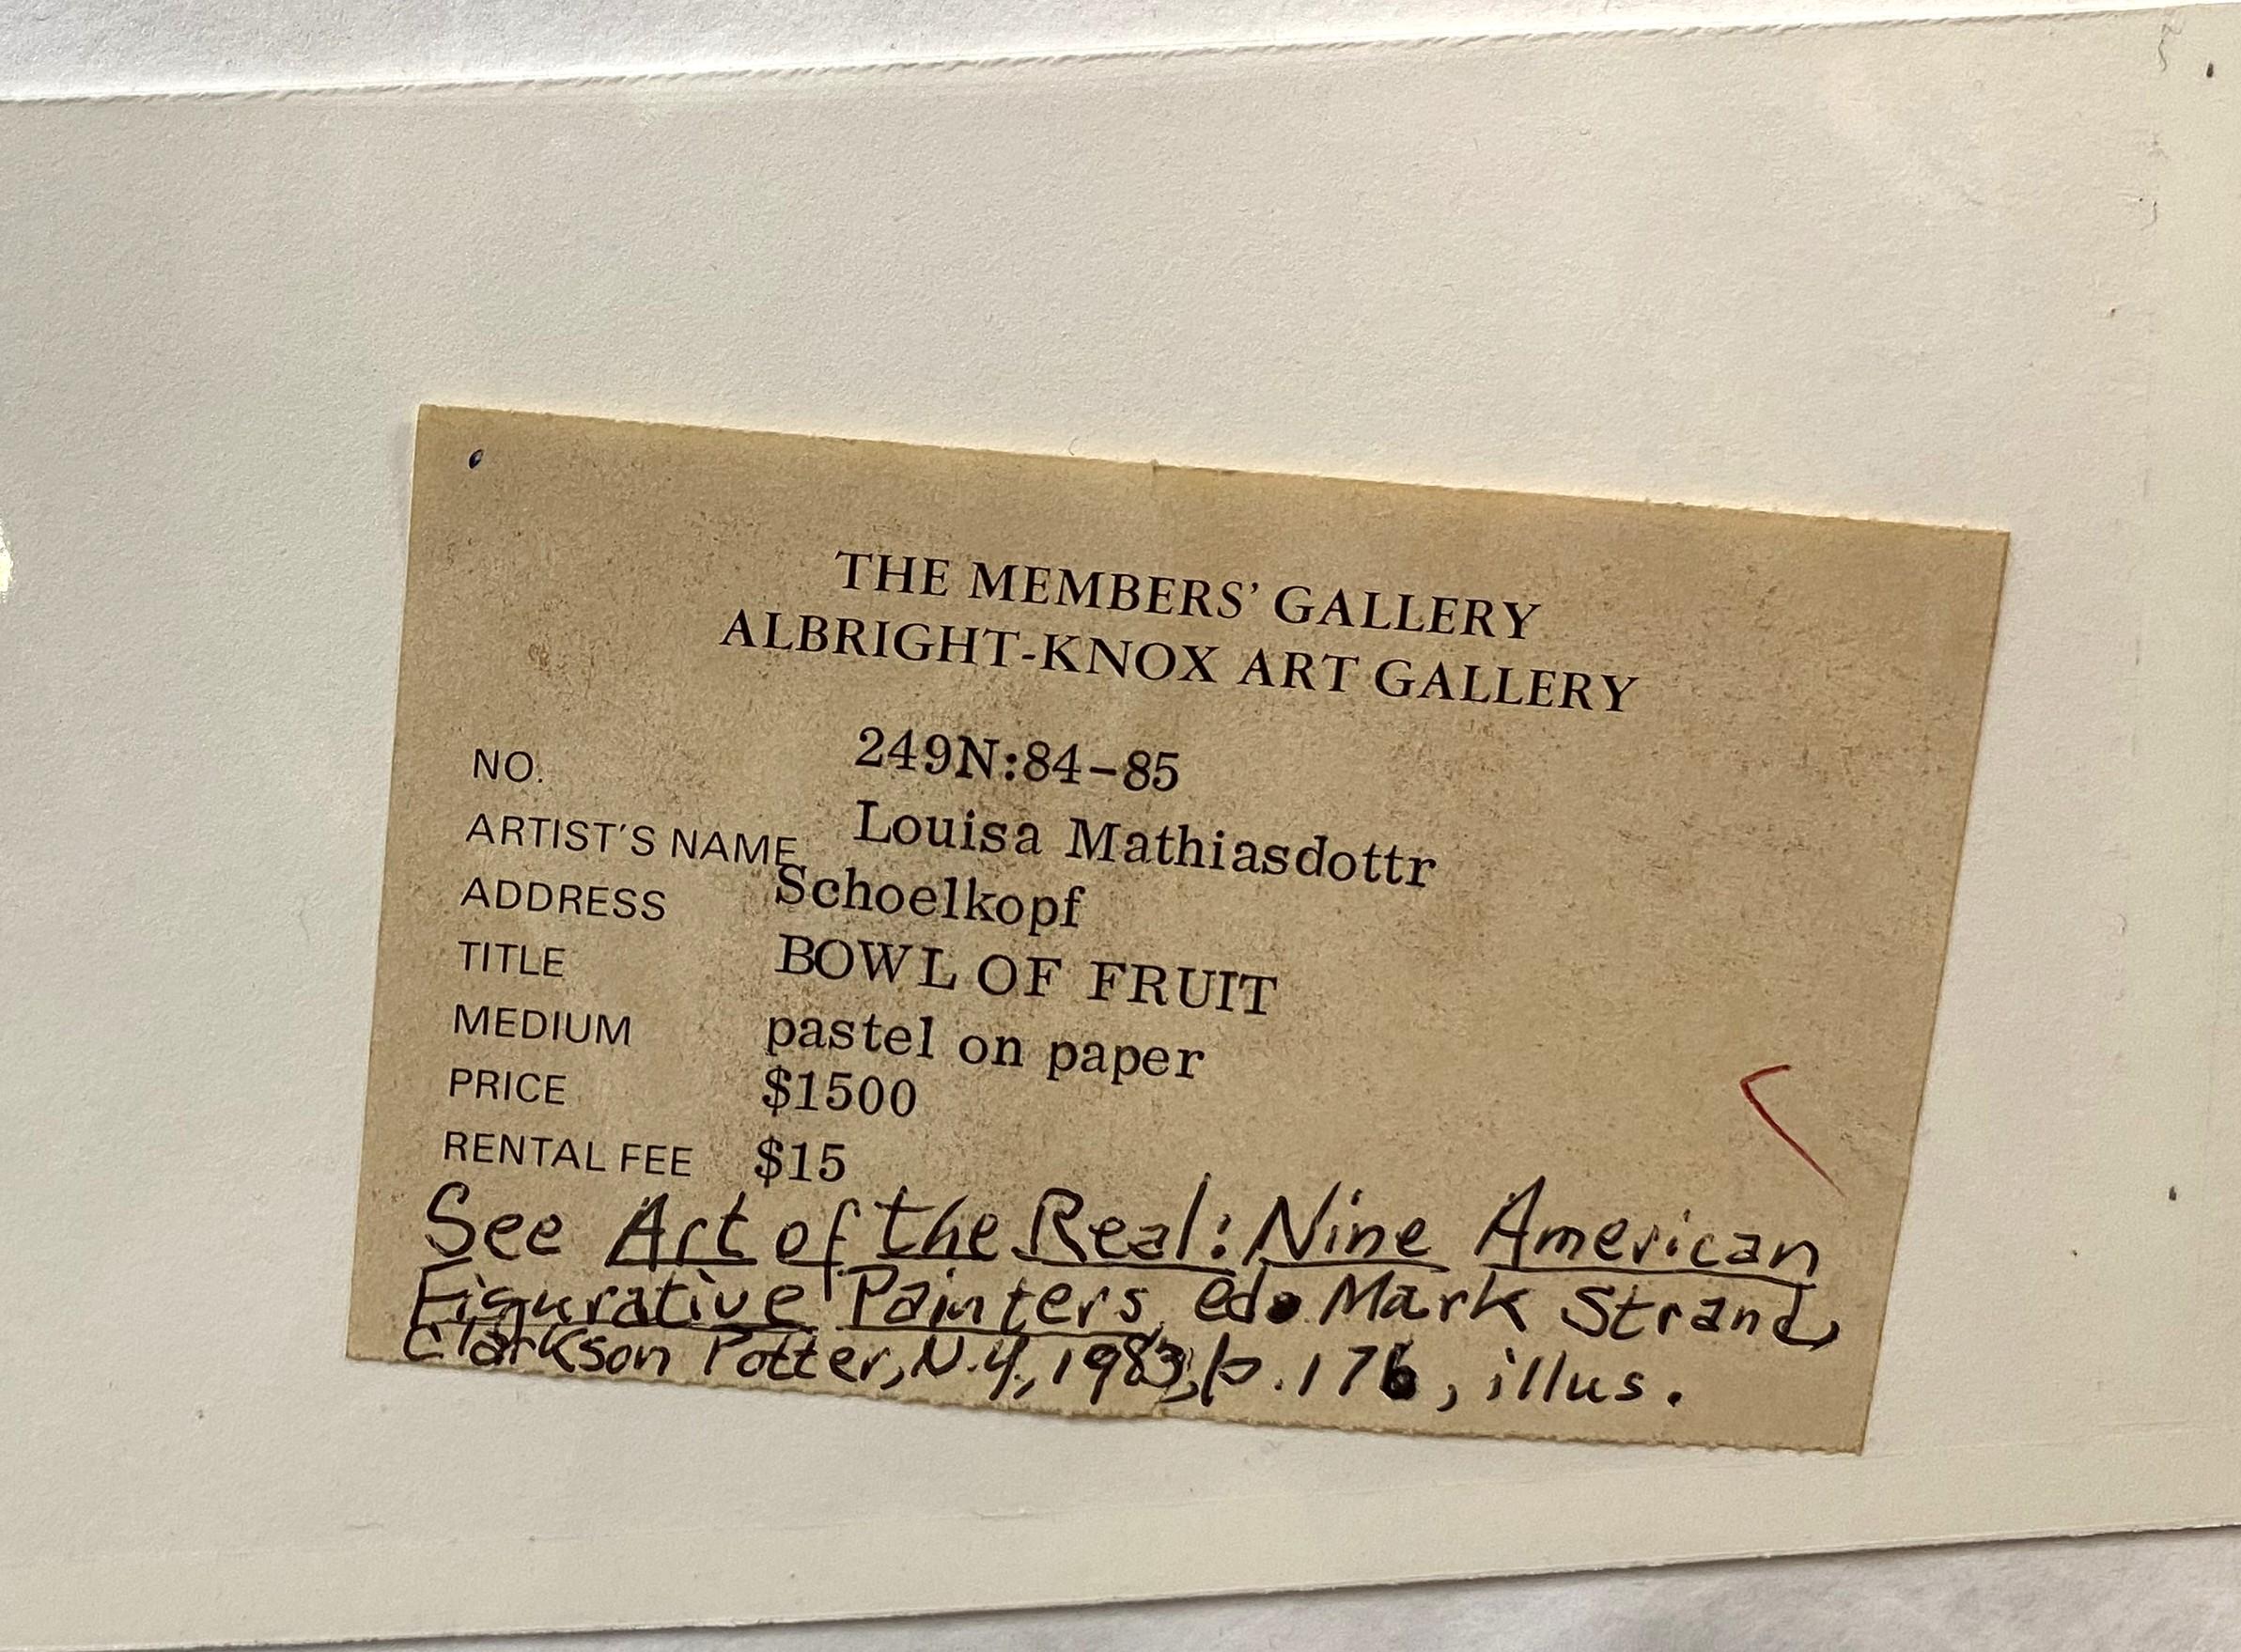 THE MEMBERS' GALLERY
ALBRIGHT-KNOX ART GALLERY
NO. 249N:84-85
ARTIST'S NAME Louisa Mathiasdottr
ADDRESS Schoelkopf
TITLE BOWL OF FRUIT
MEDIUM pastel on paper
PRICE $1500
RENTAL FEE $15
See Art of the Real: Nine American
Figurative Painters, ed. Mark Strand,
Clarkson Potter, N.Y., 1983, p. 176, illus.